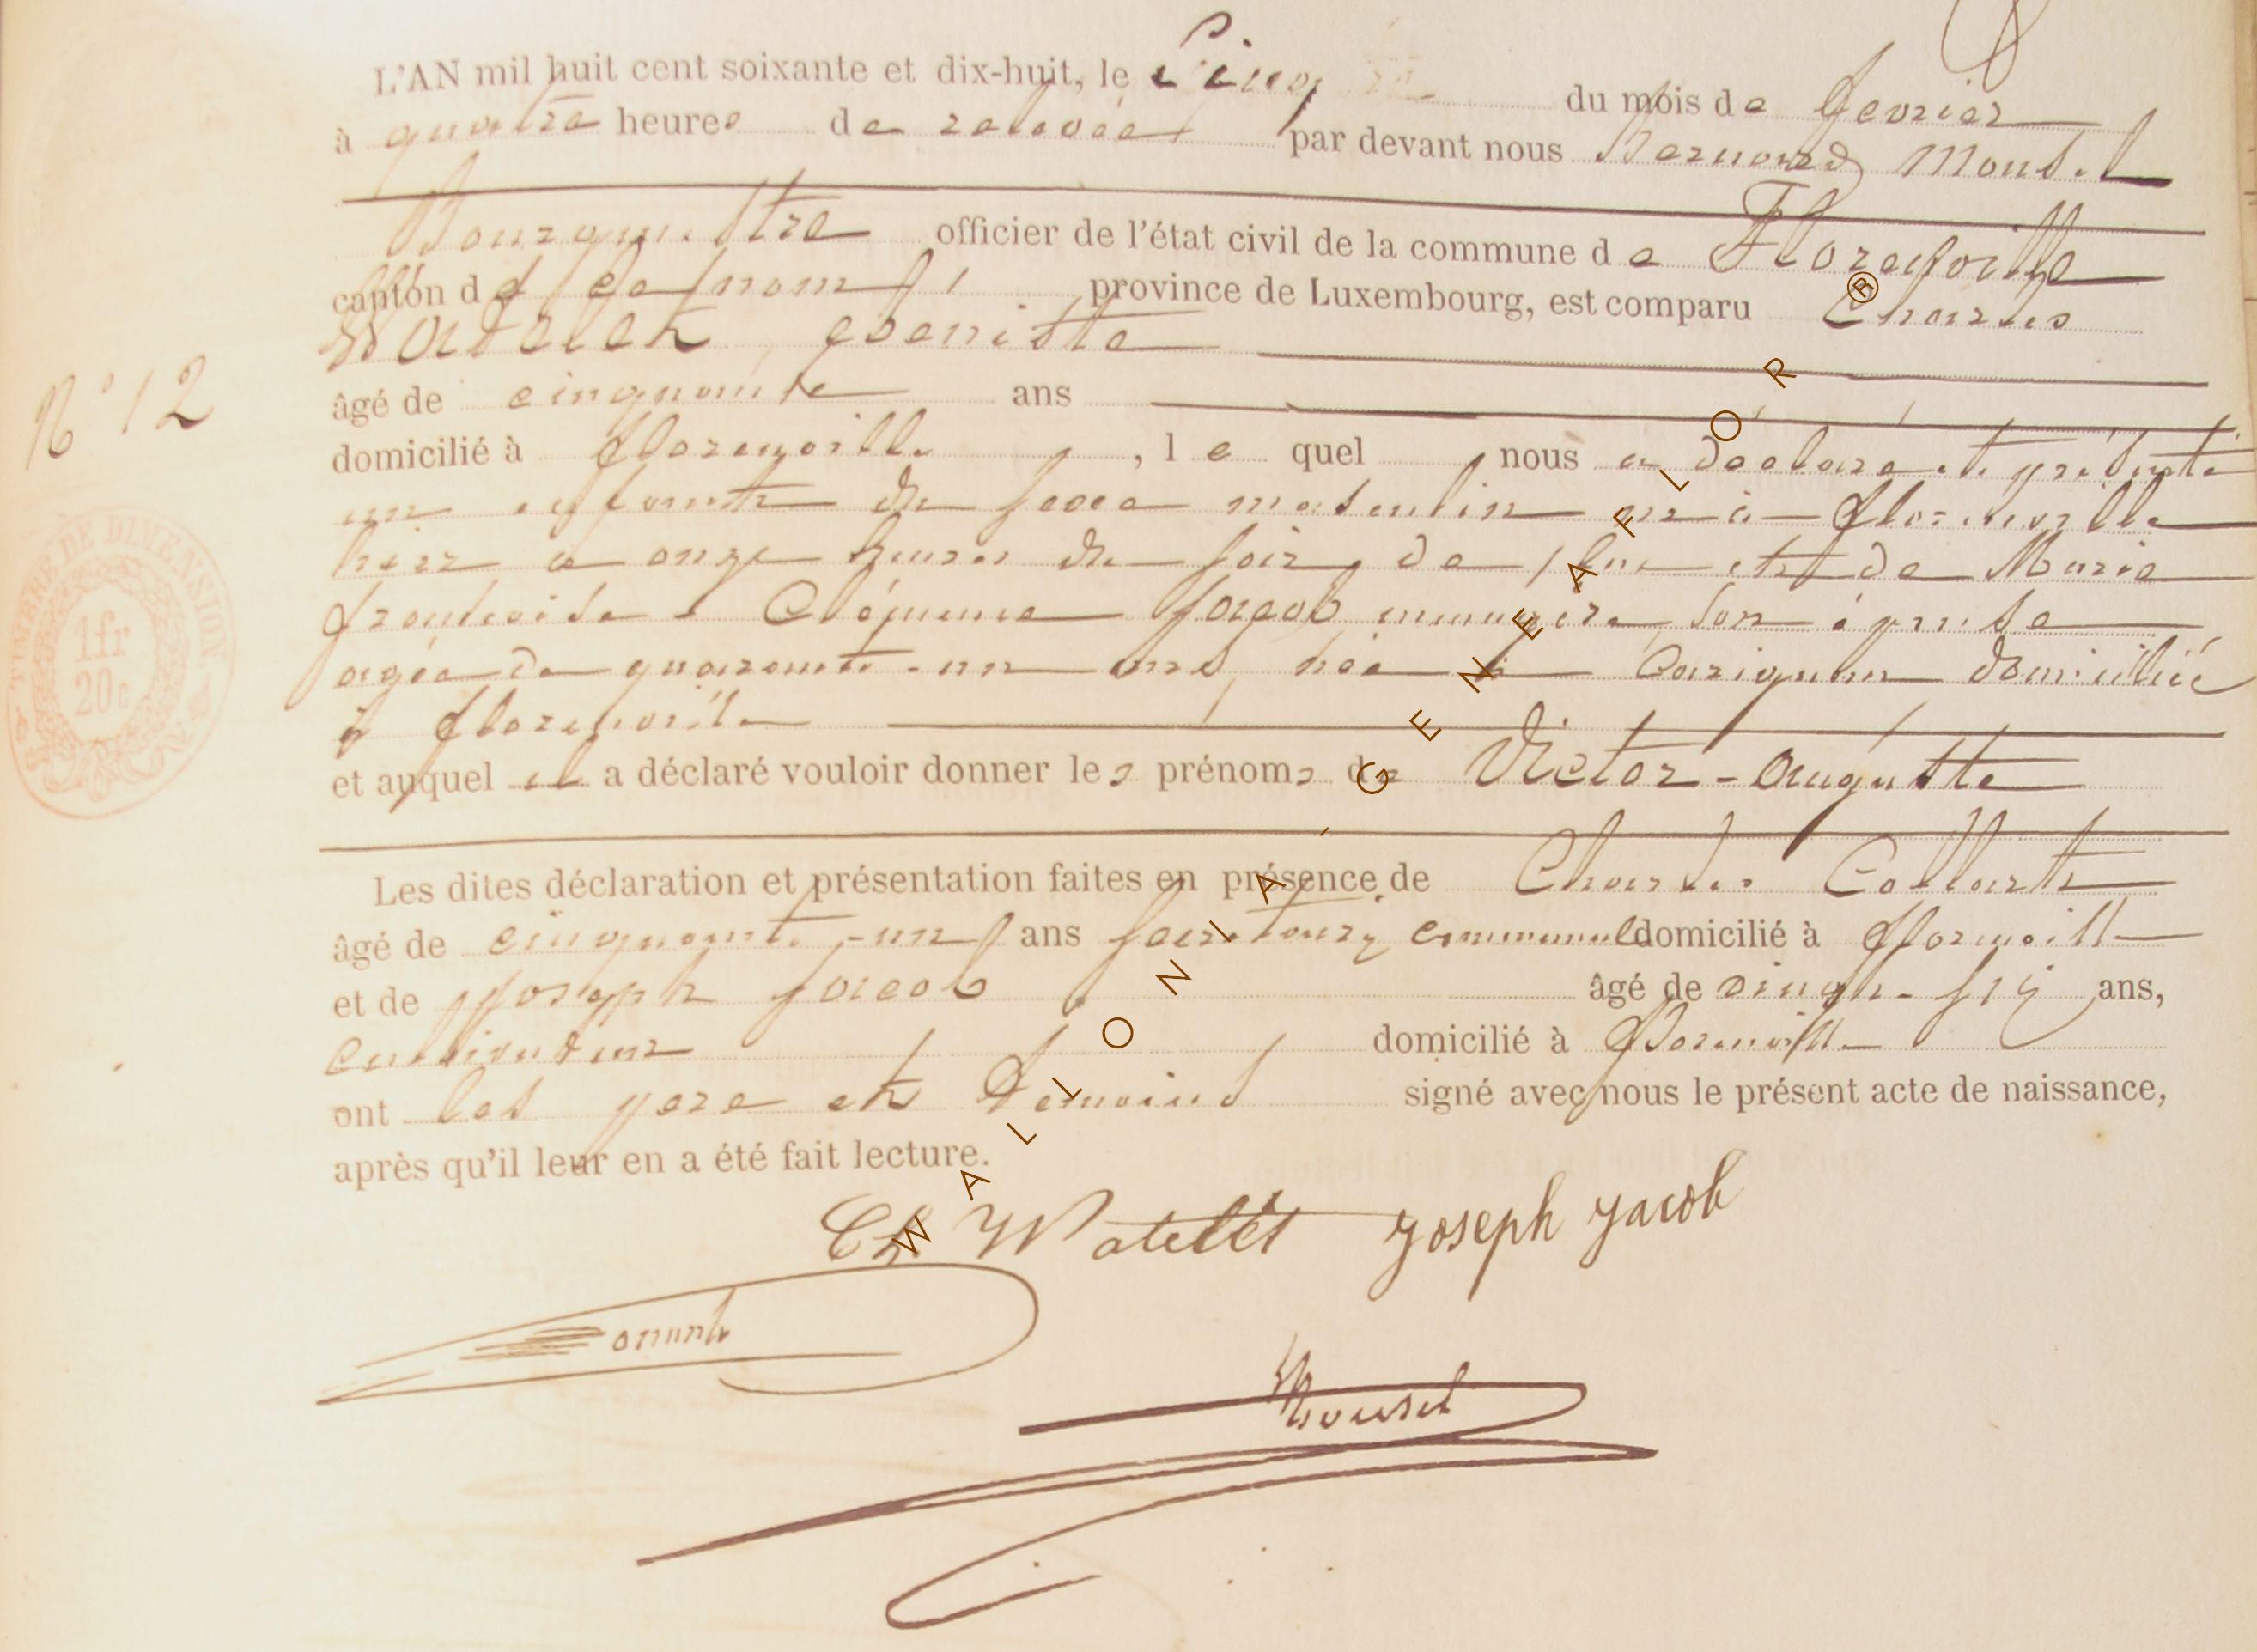 L'AN mil huit cent soixante et dix-huit, le Cinq du mois de fevrier
à quatre heures de relevée par devant nous Bernard Mousel
Bourgmestre officier de l'état civil de la commune de Florenville
canton d province de Luxembourg, est comparu Charles
Watelet, ebeniste
âgé de cinquante ans
domicilié à florenville, lequel nous a déclaré et présenté
un enfant du sexe masculin né à florenville
hier a onze heures du soir, de lui et de Marie
francoise Clép Jacob menagère son épouse
agée de quarante-un ans, née à Carignan domiciliée
à florenville
et auquel il a déclaré vouloir donner les prénoms de Victor-Auguste
Les dites déclaration et présentation faites en présence de Charles Collart
âgé de cinquante-un ans secretaire communal domicilié à florenville
et de Joseph Jacob âgé de vingt-six ans,
cultivateur domicilié à florenville
ont les pere et temoins signé avec nous le présent acte de naissance,
après qu'il leur en a été fait lecture.
N° 12
TIMBRE DE DIMENSION
1fr
20c
Ch Watelet Joseph Jacob
Mousel
WALLONIA - GENEAFLOR ®